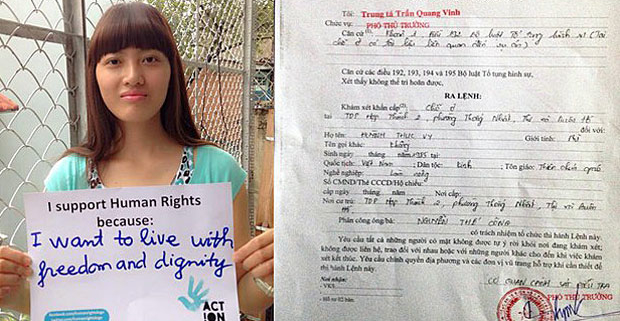 I support Human Rights
because:
I want to live with
freedom and dignity
ACT
!ON
Tôi: Trung tá Trần Quang Vinh
Chức vụ: PHÓ THỦ TRƯỞNG
Căn cứ
Căn cứ các điều 192, 193, 194 và 195 Bộ luật Tố tụng hình sự,
Xét thấy không thể trì hoãn được.
RA LỆNH:
Khám xét khẩn cấp Chỗ ở
tại TDP Hợp Thành 2, phường Thống Nhất, Thị xã Buôn Hồ
đối với:
Họ tên: HUỲNH THỤC VY Giới tính: Nữ
Tên gọi khác: Không
Sinh ngày tháng năm 1985 tại:
Quốc tịch: Việt Nam; Dân tộc: Kinh; Tôn giáo: Thiên chúa giáo
Nghề nghiệp:
Số CMND/Thẻ CCCD/Hộ chiếu:
cấp ngày tháng năm Nơi cấp:
Nơi cư trú: TDP Hợp Thành 2, phường Thống Nhất, Thị xã Buôn
Hồ
Phân công ông/bà: NGUYỄN THẾ CÔNG
có trách nhiệm tổ chức thi hành Lệnh này.
Yêu cầu tất cả những người có mặt không được tự ý rời khỏi nơi đang khám xét,
không được liên hệ, trao đổi với nhau hoặc với những người khác cho đến khi việc khám
xét kết thúc. Yêu cầu chính quyền địa phương và các đơn vị vũ trang hỗ trợ khi cần thiết để
thi hành Lệnh này.
CƠ QUAN CẢNH SÁT ĐIỀU TRA
Nơi nhận:
- VKS
- Hồ sơ 02 bản.